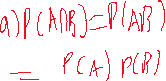 a) P(A∩B) = P(AB)
= P(A) P(B)